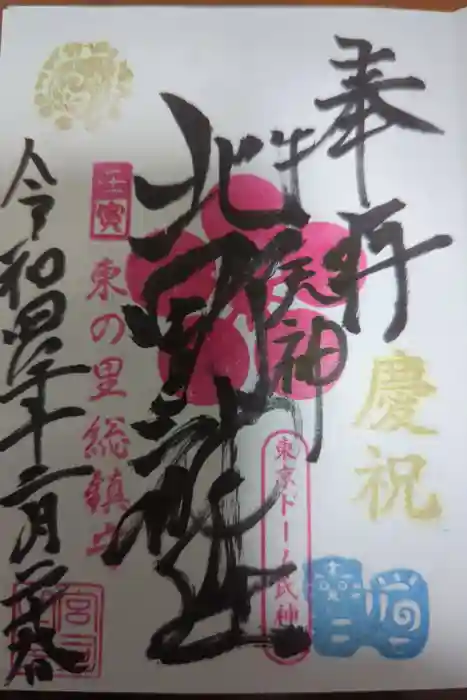 奉拝
慶祝
牛天神
北野神社
東京ドーム氏神
壬寅
東の里総鎮守
令和四年十二月
宮司